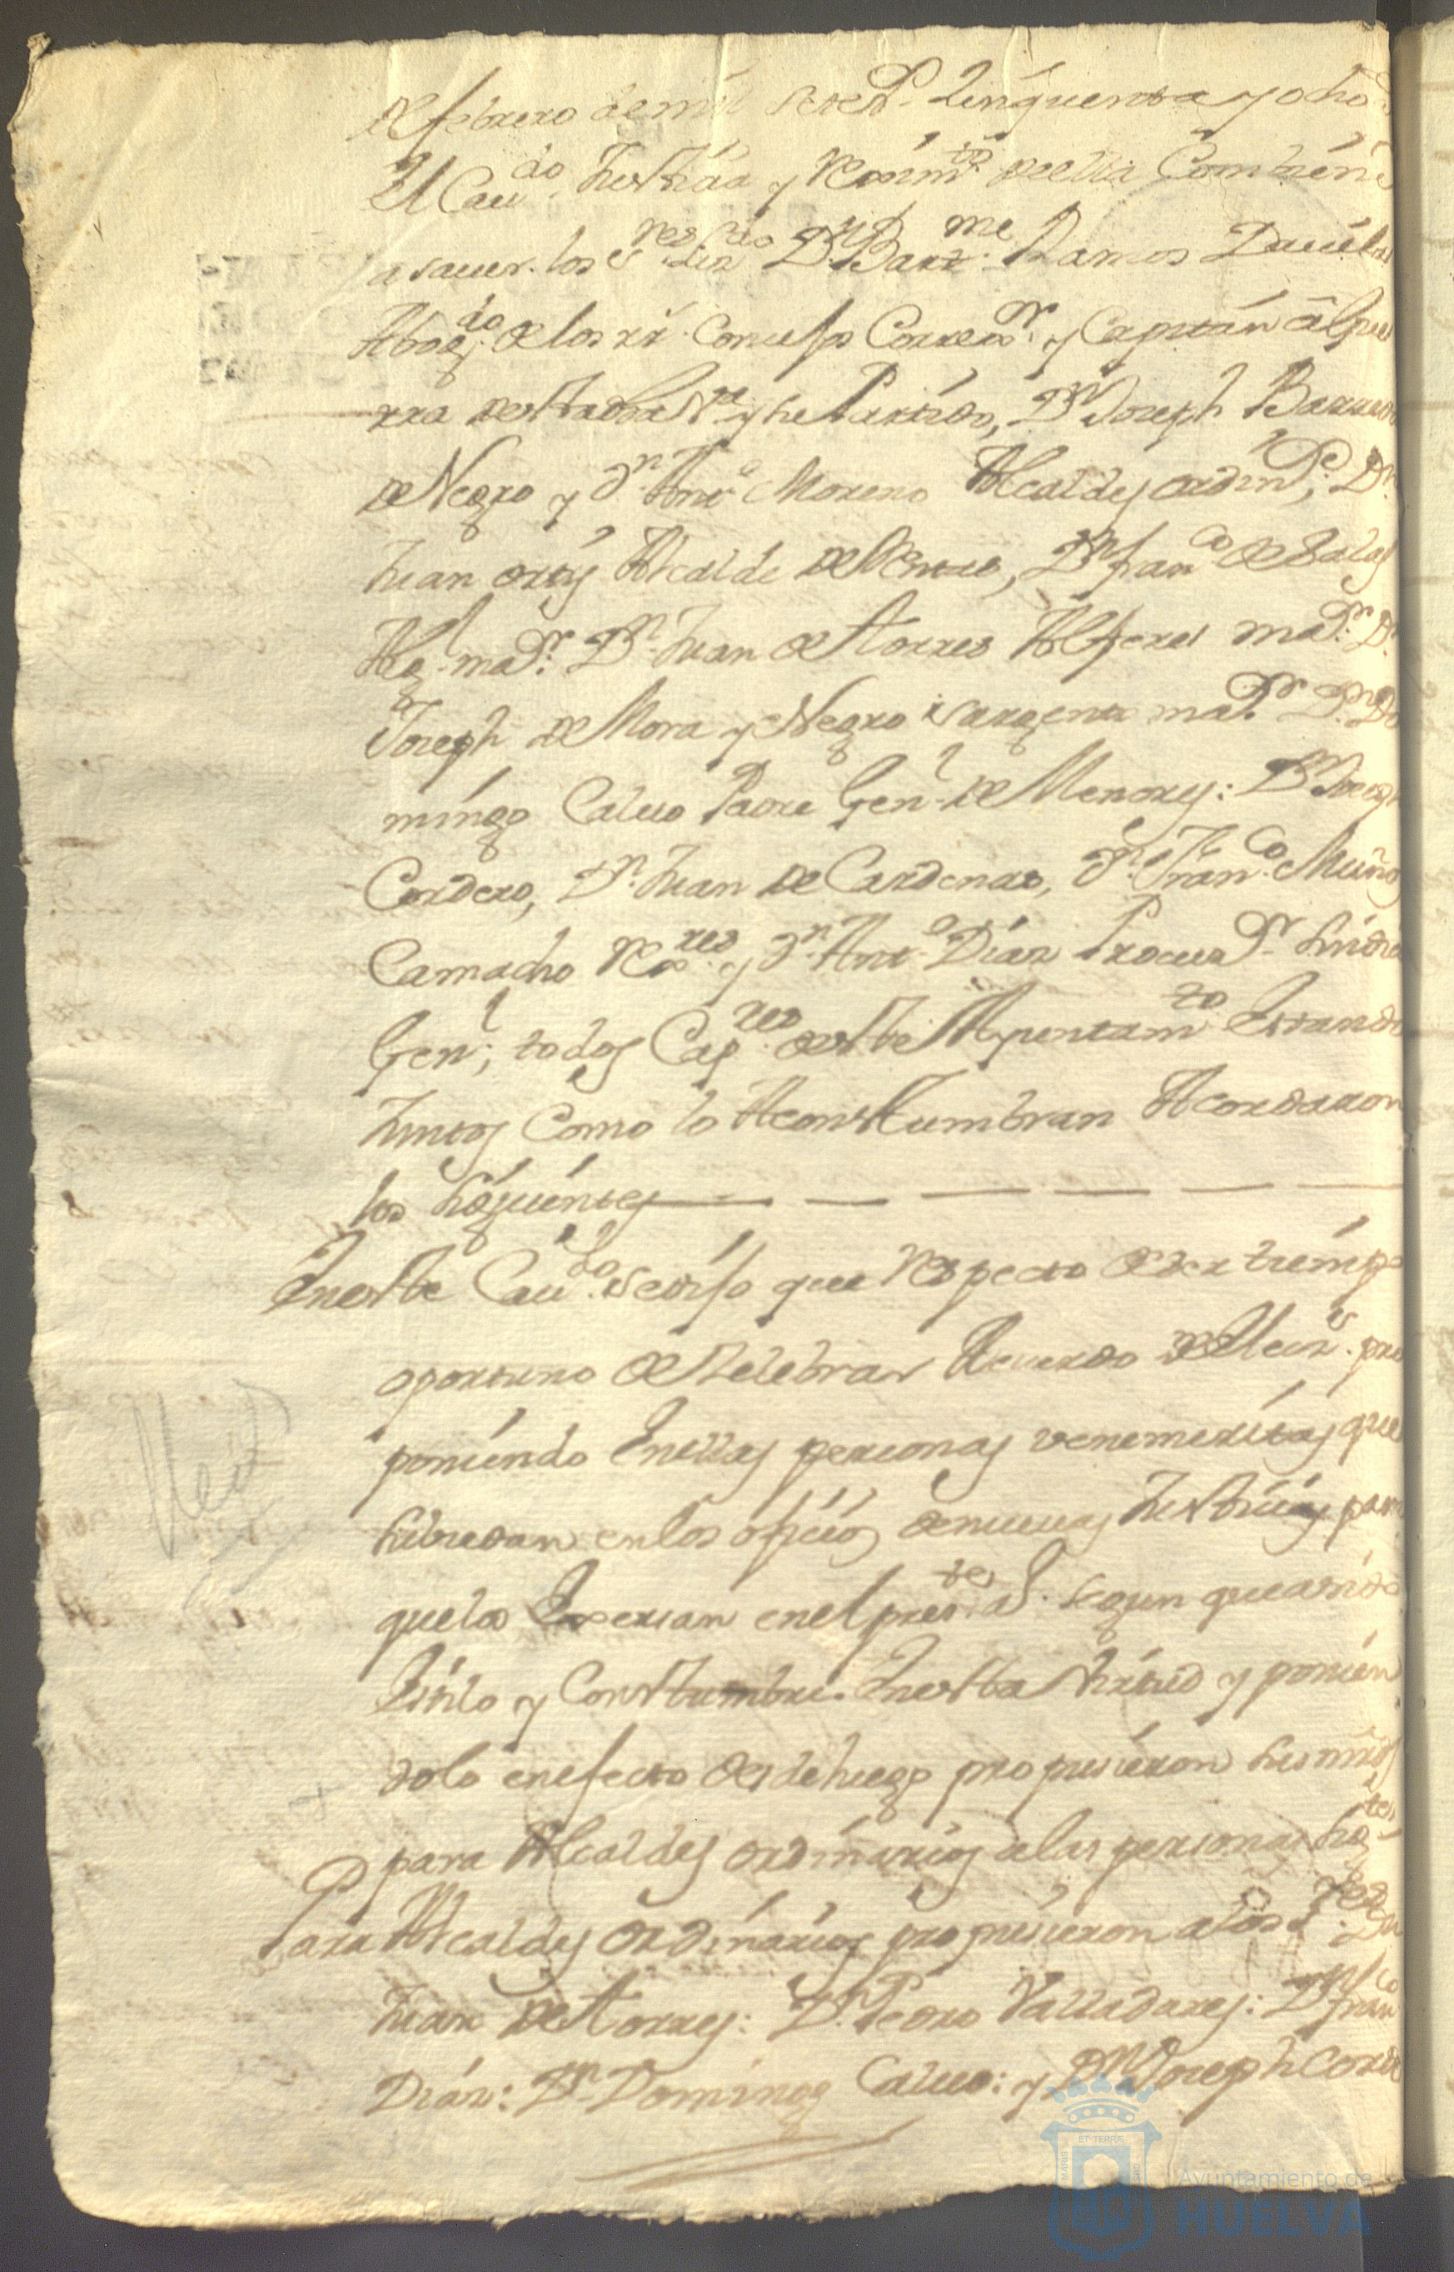 de febrero de mil setes.s Cinquenta y ocho
El Cau.do Justizia y Reximto. de ella Combiene
a sauer. los S.res Liz.do D.n Bar.me Ramos Dauila
Abog.do de los rr.s Consejos Correx.or y Capitan a Gue
rra de esta dha V.a y su Partido, D.n Joseph Barrera
de Negro y D.n Ant.o Moreno Alcaldes ordin.s; D.n
Juan ortiz Alcalde de la, D.n fran.co de Salas
Alg.l ma.or: D.n Juan de Torres Alferes ma.or: D.n
Joseph de Mora y Negro sargento ma.or D.n Do
mingo Caluo Padre Gen.l de Menores: D.n Joseph
Cordero, D.n Juan de Cardenas, D.n Fran.co Muños
Camacho Rex.res y D.n Ant.o Dias Procur.or Sindico
Gen.l; todos Cap.res de este Ayuntam.to Estando
Juntos como lo Aconstumbran Acordaron
los siguientes
En este Cau.do se dijo que respecto de ser tiempo
oportuno de Zelebrar Acuerdo de Elecz.s pro
poniendo En ellas personas venemeritas que
subcedan en los ofizios de nueuas Justizias para
que los Exersan en el pres.te a.o segun que a sido
Estilo y Constumbre. En esta Virtud y ponien
dolo en efecto desde luego propusieron sus mrds
para Alcaldes ordinarios a las personas sig.tes
Para Alcaldes Ordinarios propusieron a los S.res D.n
Juan de Torres: D.n Pedro Valladares: D.n fran.co
Dias: D.n Domingo Caluo: y D.n Joseph Corde
Ayuntamiento de
HUELVA